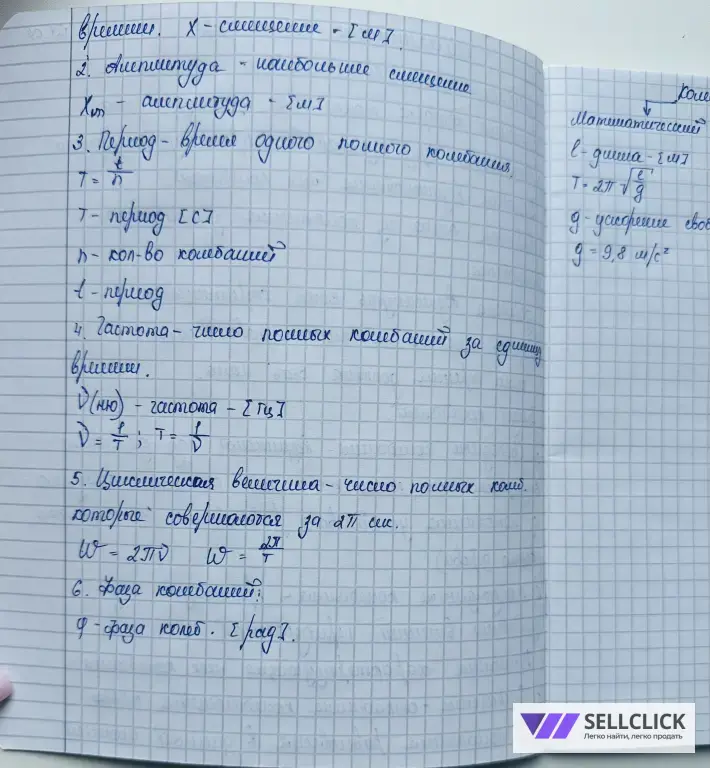 времени. X - смещение - [м].
2. Амплитуда - наибольшее смещение
Xm - амплитуда - [м]
3. Период - время одного полного колебания.
T = t/n
T - период [с]
n - кол-во колебаний
t - период
4. Частота - число полных колебаний за единицу
времени.
ν(ню) - частота - [Гц]
ν = 1/T ; T = 1/ν
5. Циклическая величина - число полных колеб.
которые совершаются за 2π сек.
W = 2πν W = 2π/T
6. Фаза колебаний:
φ - фаза колеб. [рад].
Математический
l - длина - [м]
T = 2π√l/g
g - ускорение
g = 9,8 м/с²
SELLCLICK
Легко найти, легко продать